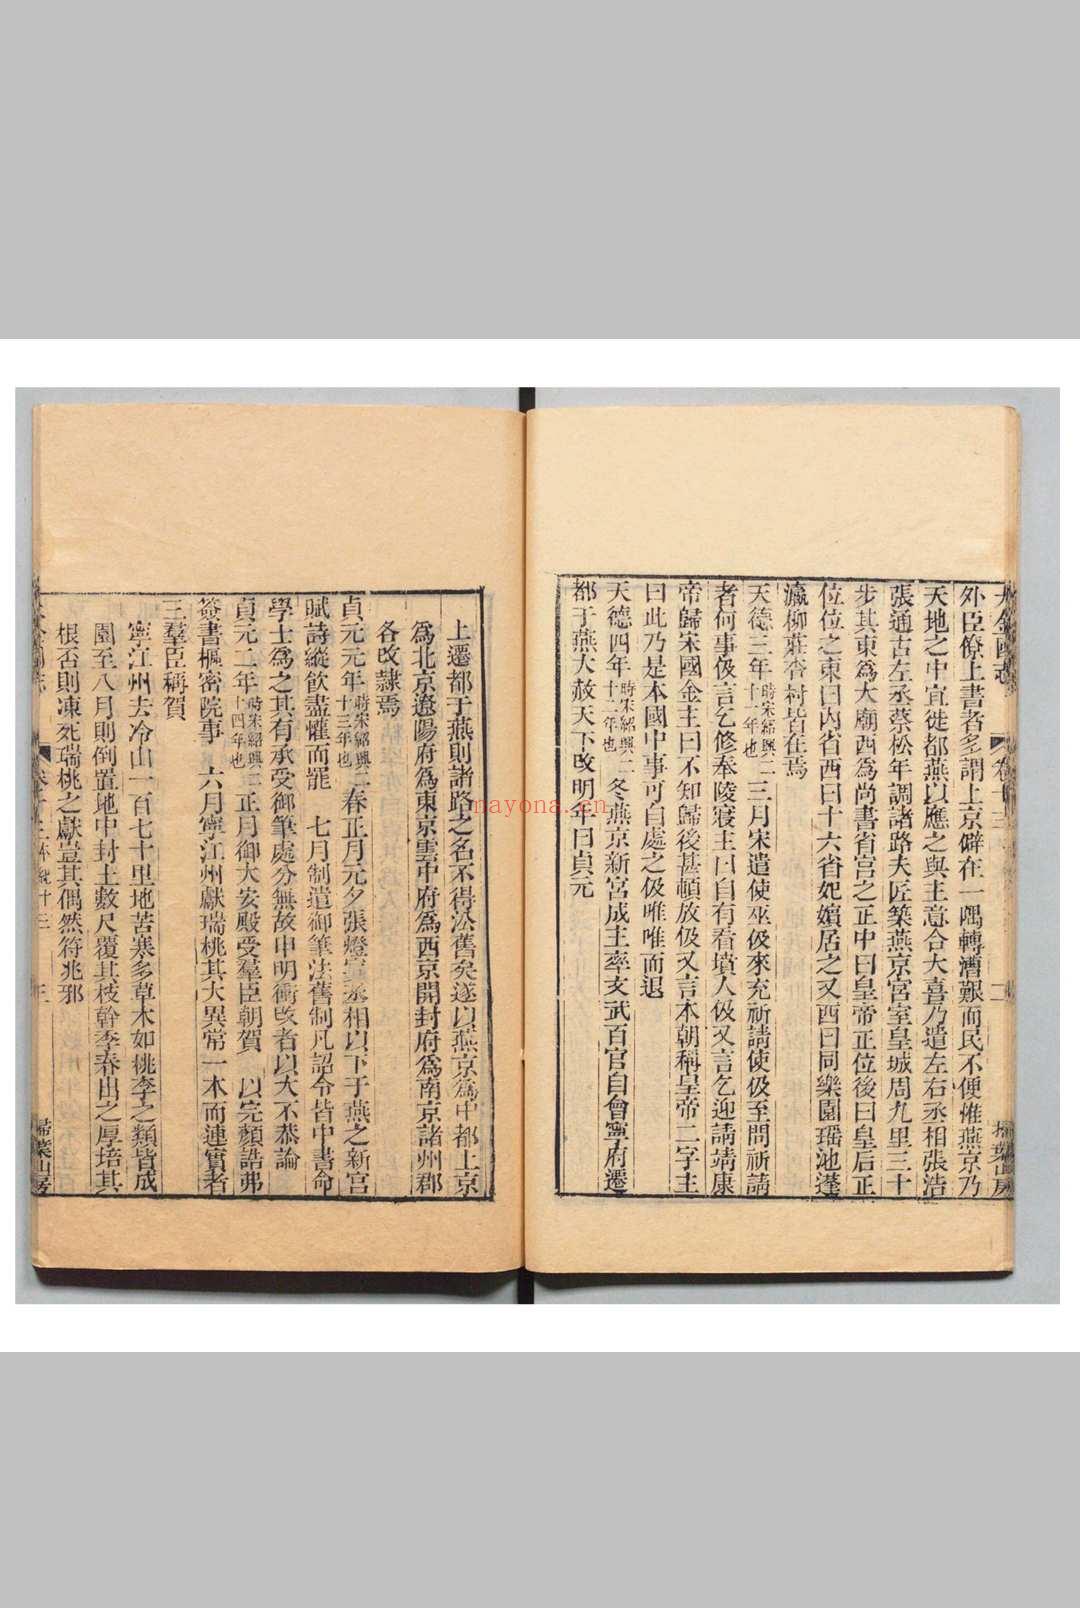 大金國志 卷十三 二 掃葉山房
外臣僚上書者多謂上京僻在一隅轉漕艱而民不便惟燕京乃
天地之中宜徙都燕以應之與主意合大喜乃遣左右丞相張浩
張通古左丞蔡松年調諸路夫匠築燕京宮室皇城周九里三十
步其東爲太廟西爲尚書省宮之正中曰皇帝正位後曰皇后正
位位之東曰內省西曰十六省妃嬪居之又西曰同樂園瑤池蓬
瀛柳莊杏村皆在焉
天德三年時宋紹興二十一年也三月宋遣使巫伋來充祈請使伋至問祈請
者何事伋言乞修奉陵寢主曰自有看墳人伋又言乞迎請靖康
帝歸宋國金主曰不知歸後甚頓放伋又言本朝稱皇帝二字主
曰此乃是本國中事可自處之伋唯唯而退
天德四年時宋紹興二十二年也冬燕京新宮成主率文武百官自會寧府遷
都于燕大赦天下改明年曰貞元
上遷都于燕則諸路之名不得㳂舊矣遂以燕京爲中都上京
爲北京遼陽府爲東京雲中府爲西京開封府爲南京諸州郡
各改隸焉
貞元元年時宋紹興二十三年也春正月元夕張燈宴丞相以下于燕之新宮
賦詩縱飲盡懽而罷 七月制遣御筆法舊制凡詔令皆中書命
學士爲之其有承受御筆處分無故申明衝改者以大不恭論
貞元二年時宋紹興二十四年也正月御大安殿受羣臣朝賀 以完顏誥弗
簽書樞密院事 六月寧江州獻瑞桃其大異常一本而連實者
三羣臣稱賀
寧江州去冷山一百七十里地苦寒多草木如桃李之類皆成
園至八月則倒置地中封土數尺覆其枝幹季春出之厚培其
根否則凍死瑞桃之獻豈其偶然符兆邪
大金國志 卷十三 本紀十三 三 掃葉山房
nayona.cn